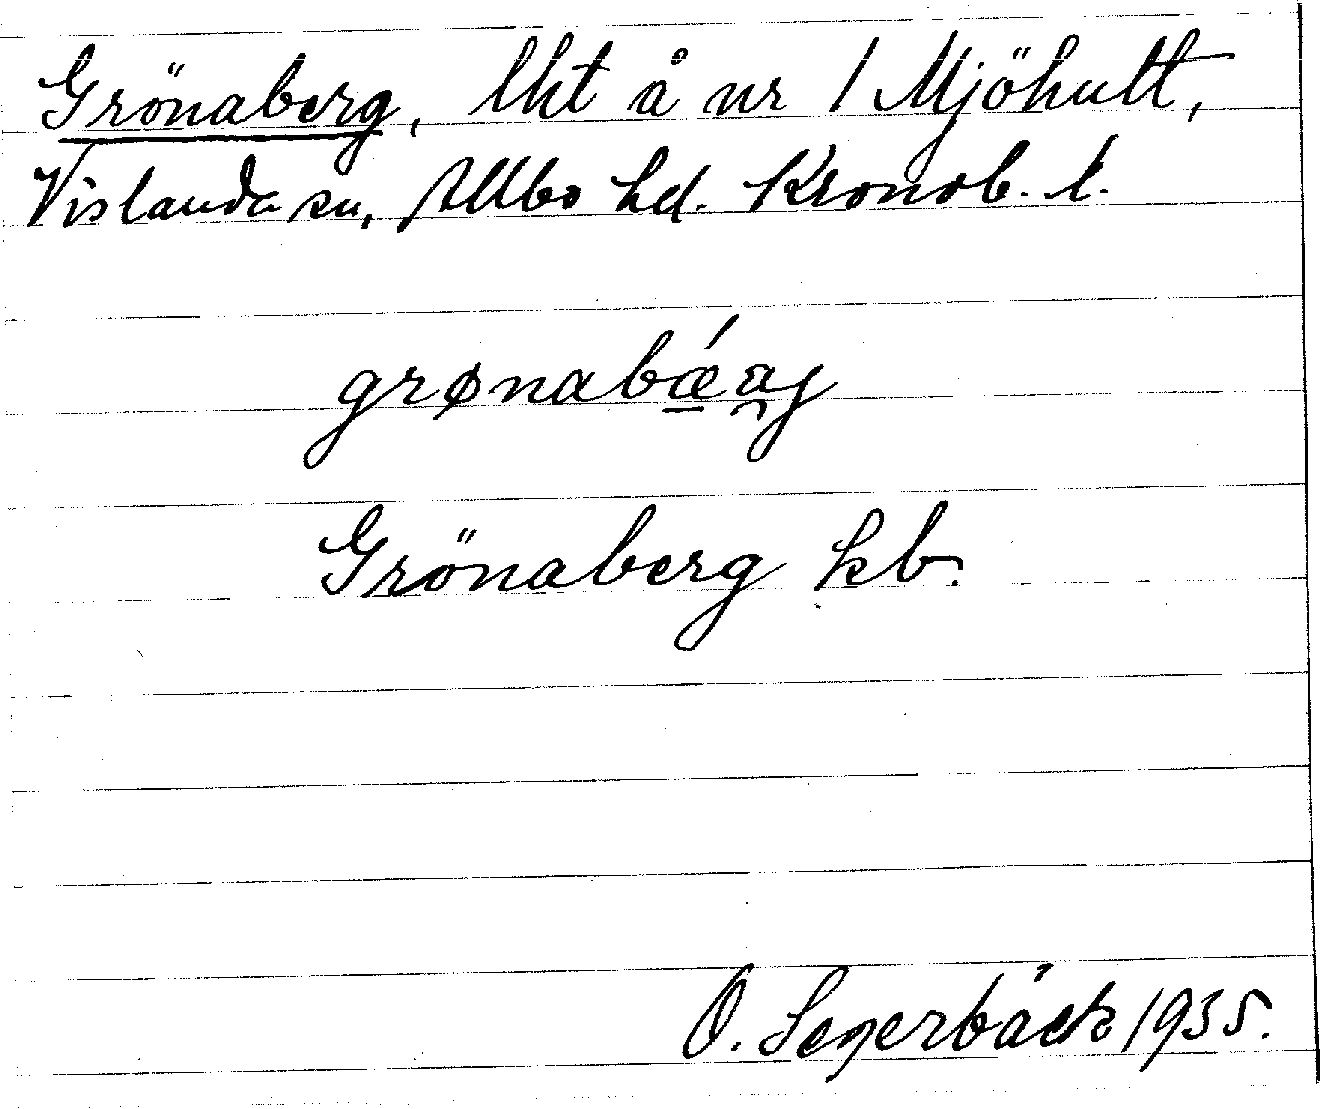 Grönaberg, lht å nr 1 Mjöhult,
Vislanda sn, Allbo hd. Kronob. l.
grønabǽa̯j
Grönaberg kb.
O. Segerbäck 1935.